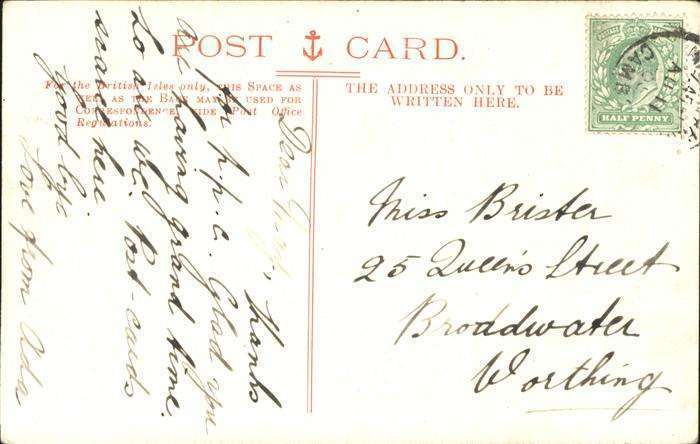 POST CARD.
For the British Isles only, THIS SPACE AS
WELL AS THE BACK MAY BE USED FOR
CORRESPONDENCE. VIDE Post Office
Regulations.
THE ADDRESS ONLY TO BE
WRITTEN HERE.
POSTAGE
HALF PENNY
CAMB
Dear
thanks
for p.p.c. Glad you
are having grand time.
So are we. Post-cards
scarce here.
Good-bye
Love from Ada
Miss Brister
25 Queen's Street
Broadwater
Worthing